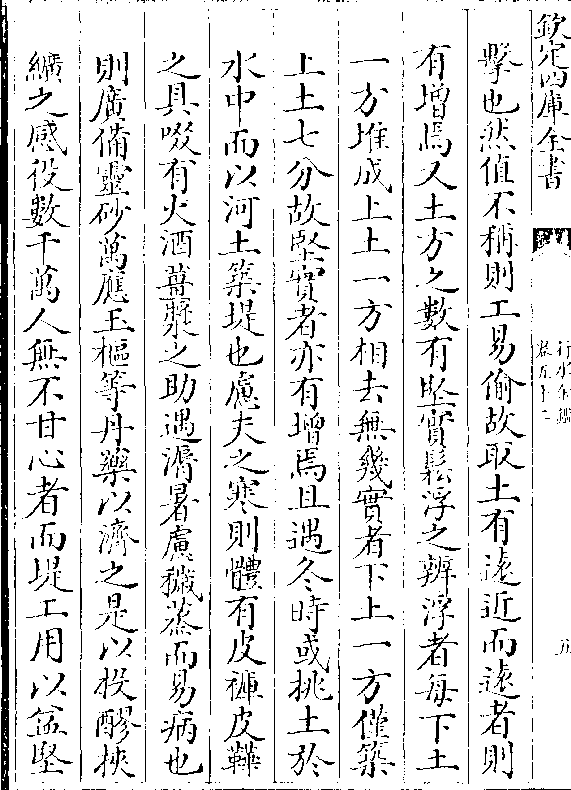 欽定四庫全書
行水金鑑
卷五十二
五
擊也然值不稱則工易偷故取土有遠近而遠者則
有增焉又土方之數有堅實鬆浮之辨浮者每下土
一方堆成上土一方相去無幾實者下土一方僅築
上土七分故堅實者亦有增焉且遇冬時或挑土於
水中而以河土築堤也慮夫之寒則體有皮褲皮鞾
之具啜有火酒薑漿之助遇溽暑慮穢蒸而易病也
則廣備靈砂萬應玉樞等丹藥以濟之是以投醪挾
纊之感役數千萬人無不甘心者而堤工用以益堅